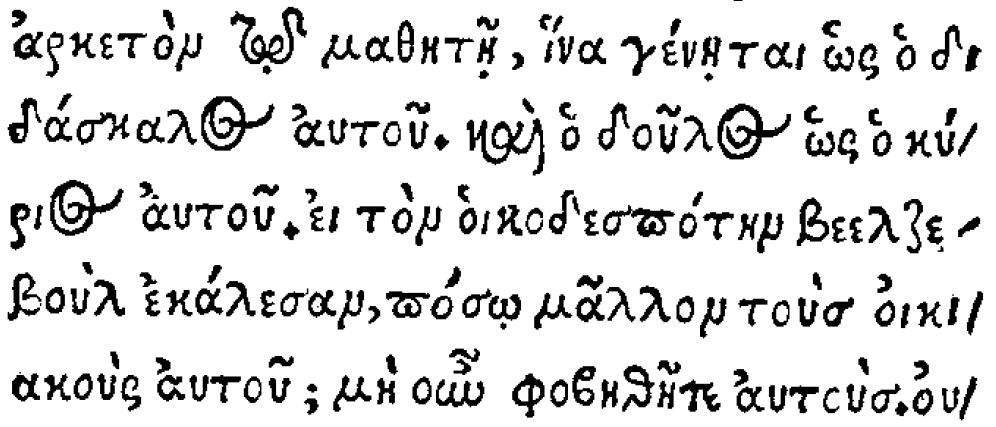 ἀρκετὸν τῷ μαθητῇ, ἵνα γένηται ὡς ὁ δι
δάσκαλος ἀυτοῦ. καὶ ὁ δοῦλος ὡς ὁ κύ/
ριος ἀυτοῦ. ἐι τὸν ὁικοδεσπότην βεελζε-
βοὺλ ἐκάλεσαν, πόσῳ μᾶλλον τοὺσ ὀικι/
ακοὺς ἀυτοῦ; μὴ οὖν φοβηθῆτε ἀυτοὺσ. ὀυ/